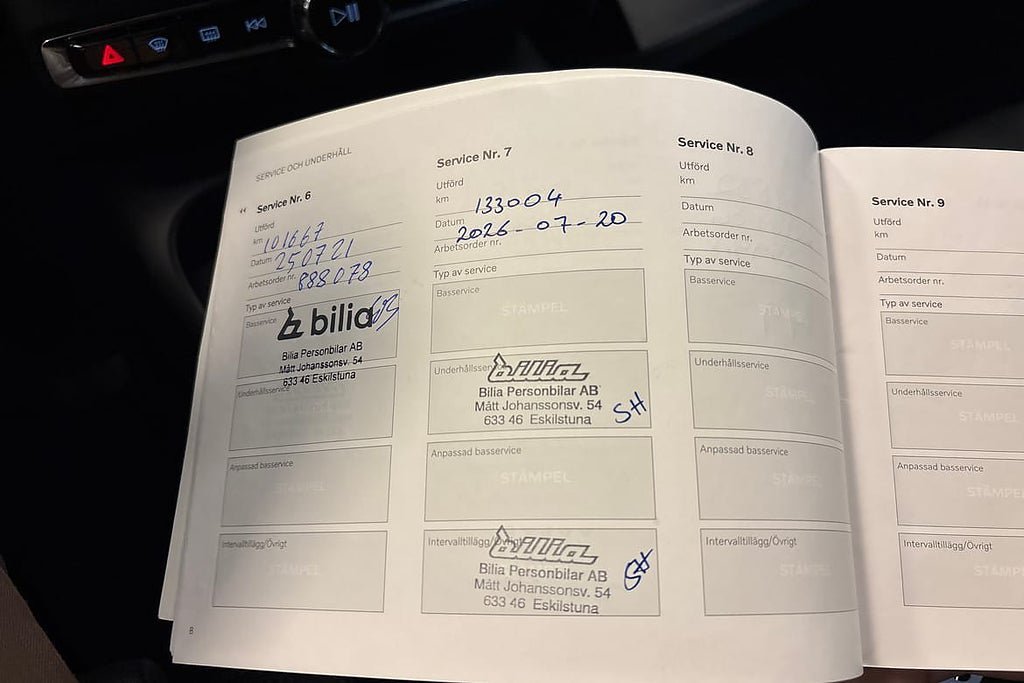 SERVICE OCH UNDERHÅLL
Service Nr. 6
Utförd
km 101667
Datum 250721
Arbetsorder nr. 888078
Typ av service
Basservice
bilia
Bilia Personbilar AB
Mått Johanssonsv. 54
633 46 Eskilstuna
Underhållsservice
Anpassad basservice
STÄMPEL
Intervalltillägg/Övrigt
STÄMPEL
8
Service Nr. 7
Utförd
km 133004
Datum 2026-07-20
Arbetsorder nr.
Typ av service
Basservice
STÄMPEL
Underhållsservice
bilia
Bilia Personbilar AB
Mått Johanssonsv. 54
633 46 Eskilstuna
SH
Anpassad basservice
STÄMPEL
Intervalltillägg/Övrigt
bilia
Bilia Personbilar AB
Mått Johanssonsv. 54
633 46 Eskilstuna
SH
Service Nr. 8
Utförd
km
Datum
Arbetsorder nr.
Typ av service
Basservice
STÄMPEL
Underhållsservice
STÄMPEL
Anpassad basservice
STÄMPEL
Intervalltillägg/Övrigt
STÄMPEL
Service Nr. 9
Utförd
km
Datum
Arbetsorder nr.
Typ av service
Basservice
STÄMPEL
Underhållsservice
STÄMPEL
Anpassad basservice
STÄMPEL
Intervalltillägg/Övrigt
STÄMPEL